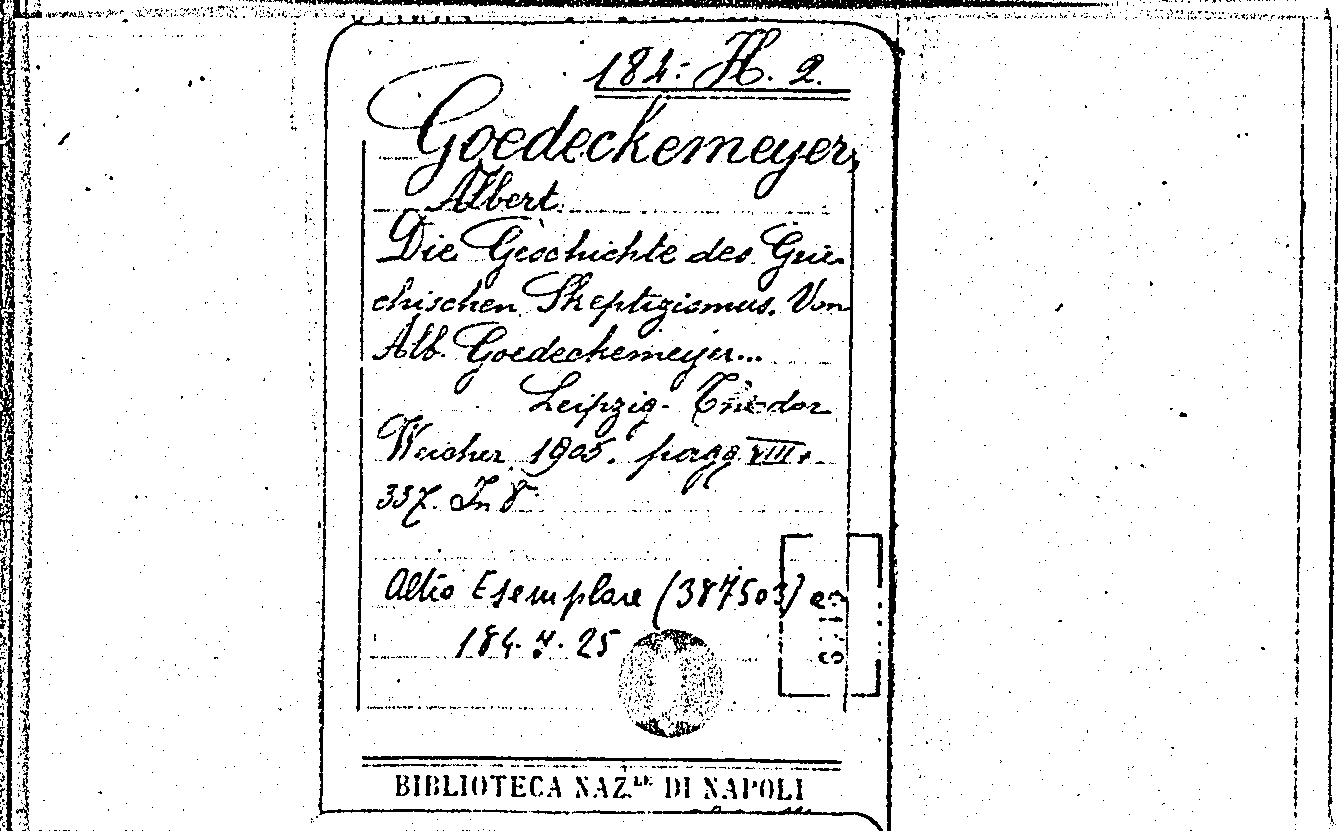 184. H. 2.
Goedeckemeyer,
Albert.
Die Geschichte des Grie-
chischen Skeptizismus. Von
Alb. Goedeckemeyer...
Leipzig.
Weicher. 1905. pagg. VIII.
337. In 8°
Altro Esemplare (387503)
184. 7. 25
BIBLIOTECA NAZ.LE DI NAPOLI